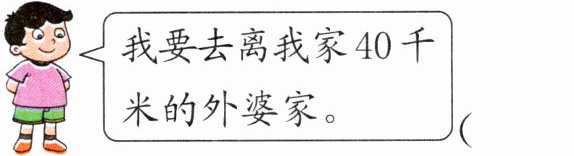 我要去离我家40千
米的外婆家。
(